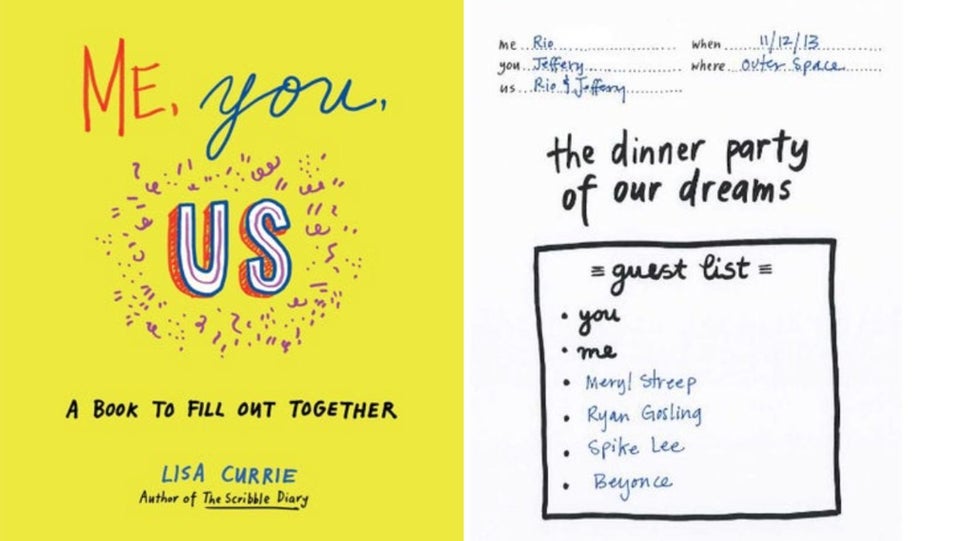 ME, you,
US
A BOOK TO FILL OUT TOGETHER
LISA CURRIE
Author of The Scribble Diary
me Rio when 11/12/13
you Jeffery where outer space
us Rio & Jeffery
the dinner party
of our dreams
guest list
• you
• me
• Meryl Streep
• Ryan Gosling
• Spike Lee
• Beyonce